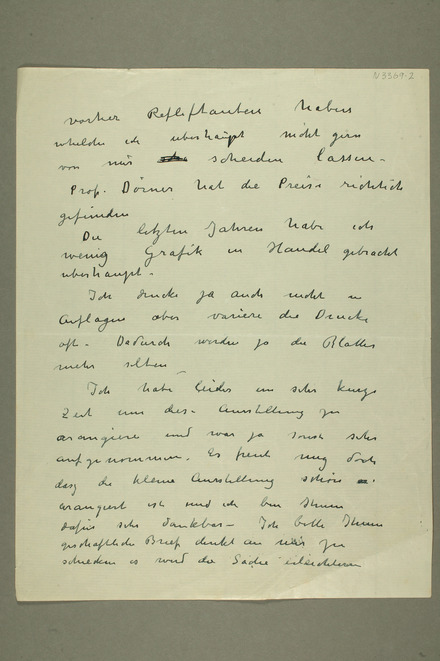 N3369.2
vorher Reflektanten haben
welche ich überhaupt nicht gern
von mir scheiden lassen.
Prof. Dörner hat die Preise richtich
gefunden
Die letzten Jahren habe ich
wenig Grafik in Handel gebracht
überhaupt.
Ich drucke ja auch nicht in
Auflagen aber variere die Drucke
oft. Dadurch werden ja die Blatter
mehr selten
Ich habe leider ein sehr kurze
Zeit um diese Ausstellung zu
arangiere und war ja sonst sehr
aufgenommen. Es freut mig doch
dasz die kleine Ausstellung schön
arangiert ist und ich bin Ihnen
dafür sehr dankbar – Ich bitte Ihnen
geschäftliche Brief direkt an mir zu
schicken es wird die Sache erleichtern